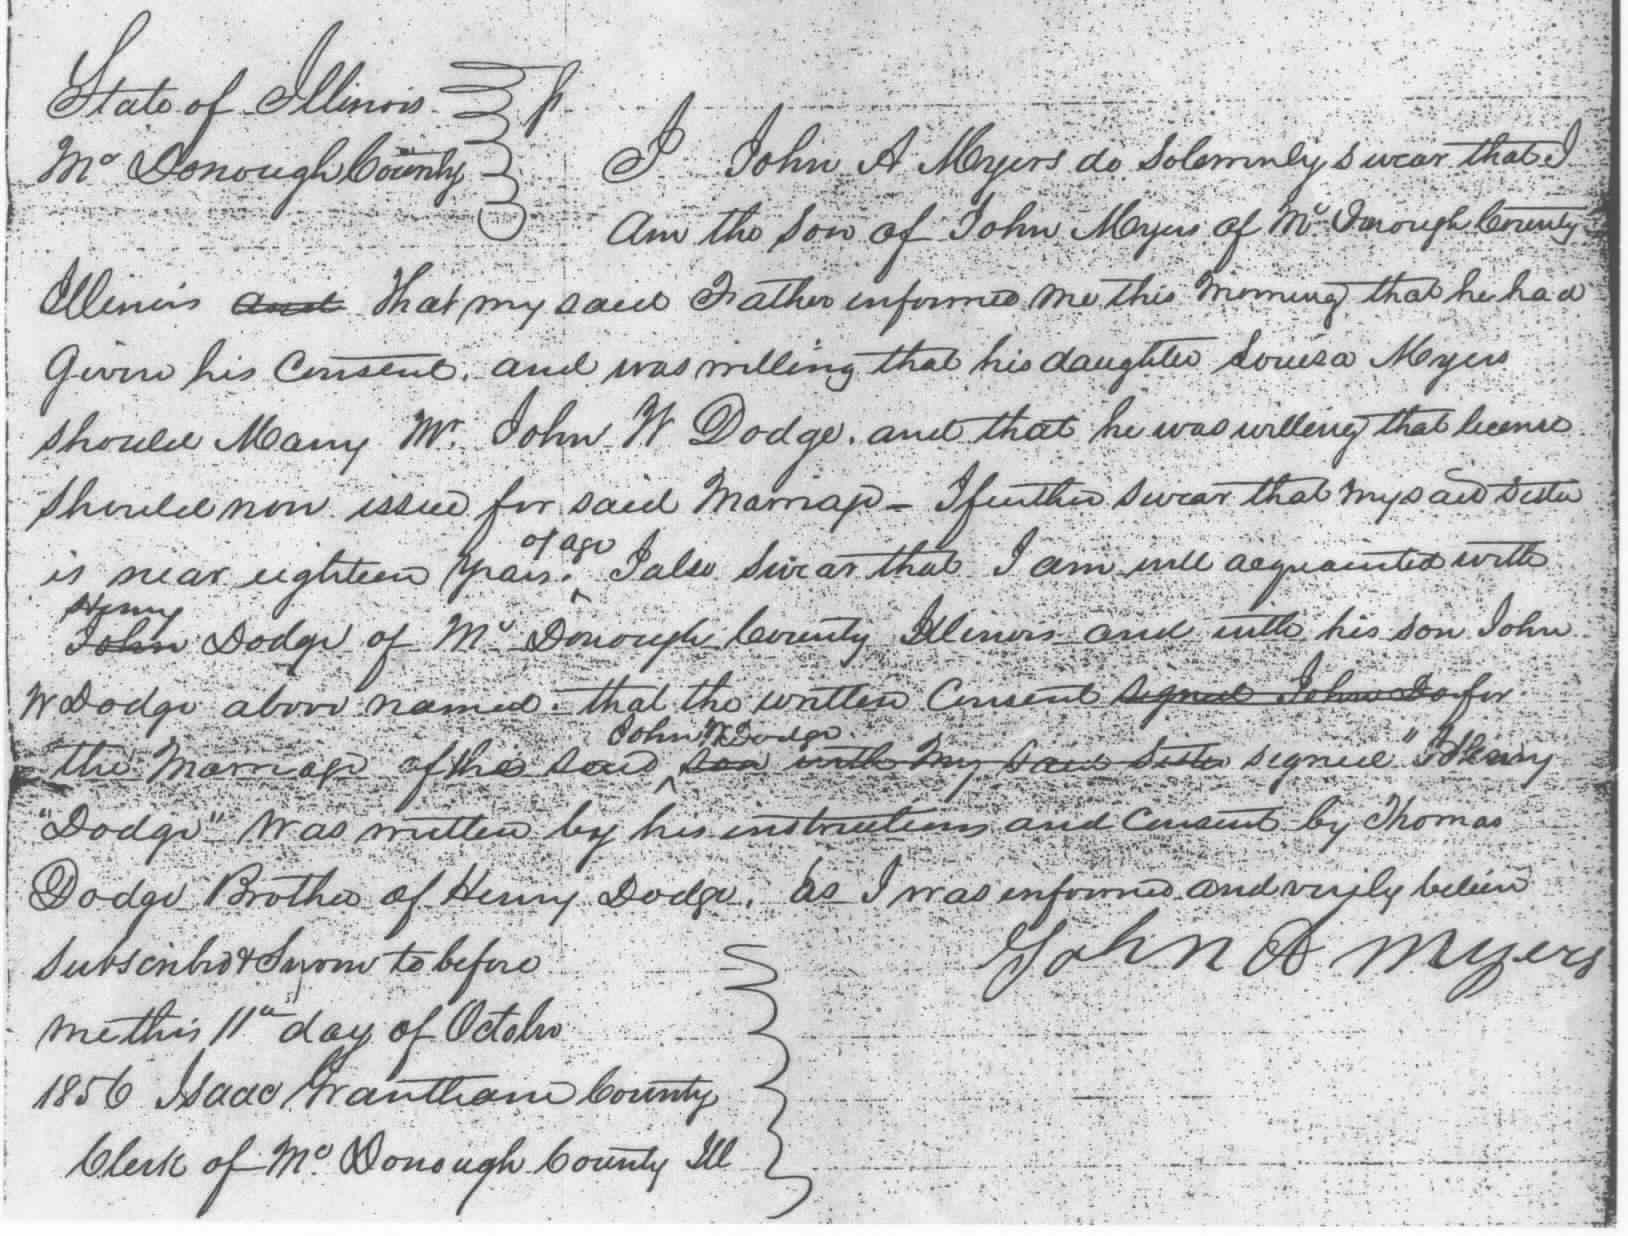 State of Illinois } ss
Mc Donough County }
I John A Myers do Solemnly swear that I
Am the Son of John Myers of Mc Donough County
Illinois and that my said Father informed me this Morning that he had
Given his Consent. and was willing that his daughter Louisa Myers
should Marry Mr. John W Dodge. and that he was willing that license
should now issue for said Marriage - I further swear that my said sister
of age
is near eighteen years. I also swear that I am well acquainted with
Henry
John Dodge of Mc Donough County Illinois and with his son John
W Dodge above named. that the written Consent signed John Do for
John W Dodge
the Marriage of the said son with my said sister signed "Henry
"Dodge" was written by his instructions and consent by Thomas
Dodge Brother of Henry Dodge. as I was informed and verily believe
Subscribed & Sworn to before
John A Myers
me this 11th day of October
1856 Isaac Grantham County
Clerk of Mc Donough County Ill